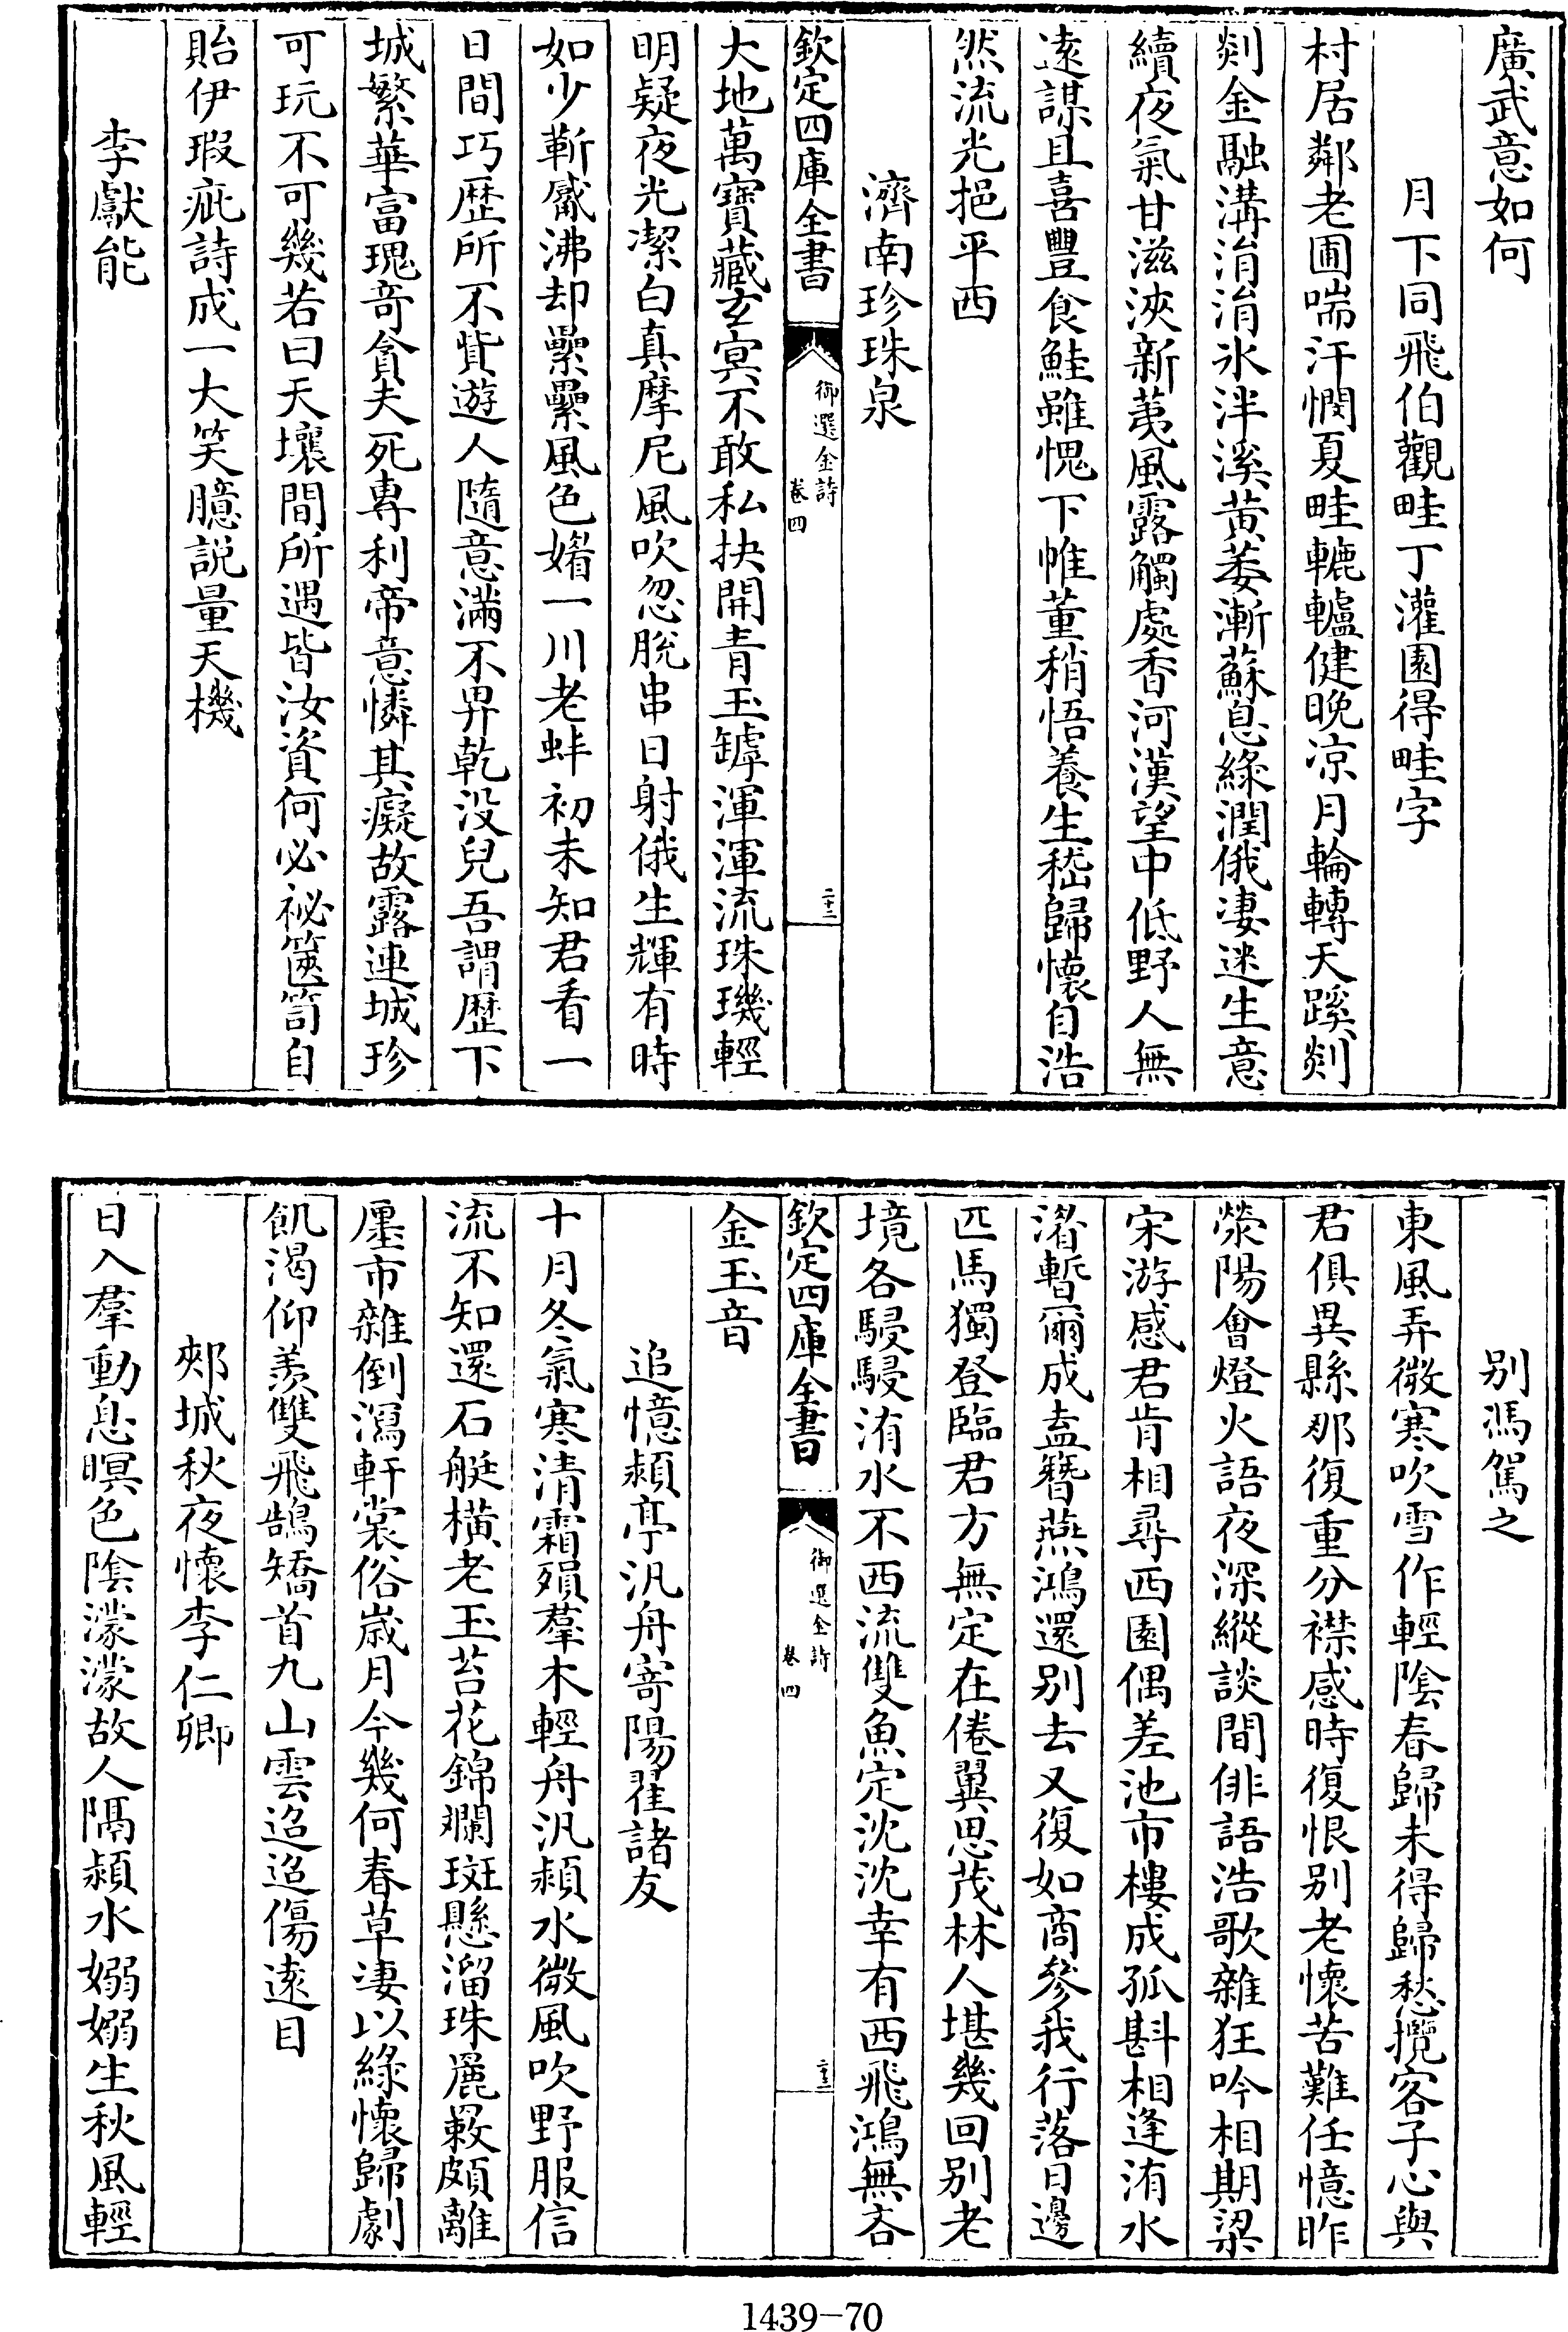 廣武意如何
月下同飛伯觀畦丁灌園得畦字
村居鄰老圃喘汗憫夏畦轆轤健晚凉月輪轉天蹊剡
剡金融溝涓涓氷泮溪黃萎漸蘇息綠潤俄凄迷生意
續夜氣甘滋浹新荑風露觸處香河漢望中低野人無
遠謀且喜豐食鮭雖愧下帷董稍悟養生嵇歸懷自浩
然流光挹平西
濟南珍珠泉
欽定四庫全書
御選金詩
卷四
二十二
大地萬寶藏玄冥不敢私抉開青玉罅渾渾流珠璣輕
明疑夜光潔白真摩尼風吹忽脫串日射俄生輝有時
如少靳觱沸却纍纍風色媚一川老蚌初未知君看一
日間巧歷所不貲遊人隨意滿不畀乾没兒吾謂歷下
城繁華富瑰奇貪夫死專利帝意憐其癡故露連城珍
可玩不可幾若曰天壤間所遇皆汝資何必祕篋笥自
貽伊瑕疵詩成一大笑臆説量天機
李獻能
别馮駕之
東風弄微寒吹雪作輕陰春歸未得歸愁攪客子心與
君俱異縣那復重分襟感時復恨别老懷苦難任憶昨
滎陽會燈火語夜深縱談間俳語浩歌雜狂吟相期梁
宋游感君肯相尋西園偶差池市樓成孤斟相逢洧水
濳暫爾成盍簪燕鴻還别去又復如商參我行落日邊
匹馬獨登臨君方無定在倦翼思茂林人堪幾回别老
境各駸駸洧水不西流雙魚定沈沈幸有西飛鴻無吝
欽定四庫全書
御選金詩
卷四
二十三
金玉音
追憶潁亭汎舟寄陽翟諸友
十月冬氣寒清霜殞羣木輕舟汎潁水微風吹野服信
流不知還石艇橫老玉苔花錦斕斑懸溜珠麗簌頗離
㕓市雜倒瀉軒裳俗歲月今幾何春草凄以綠懷歸劇
飢渴仰羨雙飛鵠矯首九山雲迢迢傷遠目
郟城秋夜懷李仁卿
日入羣動息暝色陰濛濛故人隔潁水嫋嫋生秋風輕
1439-70